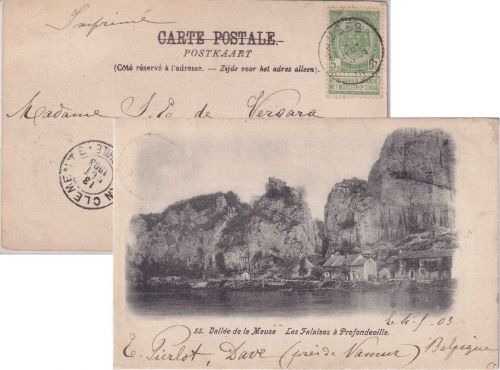 Imprimé
CARTE POSTALE.
POSTKAART
(Côté réservé à l'adresse. — Zijde voor het adres alleen.)
Madame S. E. de Vergara
N CLEMEN
13
1903
5
5
55. Vallée de la Meuse Les Falaises à Profondeville.
03
E. Pierlot, Dave (près de Namur) Belgique